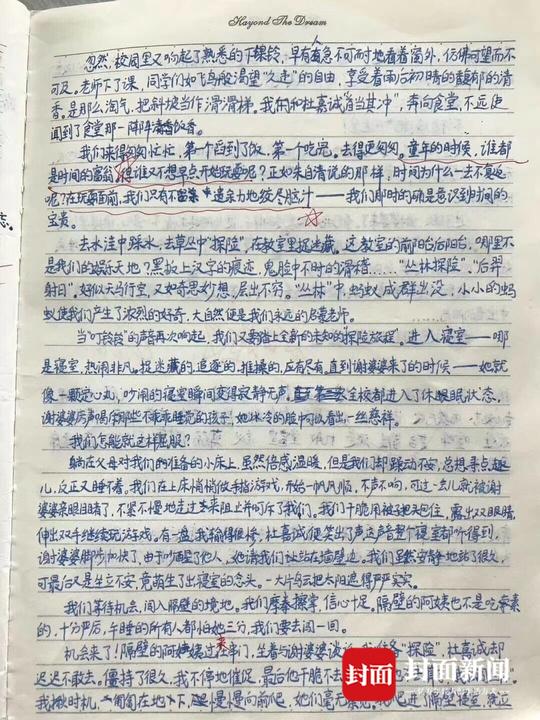 Hayond The Dream
忽然，校园里又响起了熟悉的下课铃，早有人急不可耐地看着窗外，仿佛可望而不
可及。老师下了课，同学们如飞鸟般渴望“久违”的自由，享受着雨后初晴的馥郁的清
香。是那么淘气，把斜坡当作滑滑梯。我和杜嘉诚“首当其冲”，奔向食堂，不远便
闻到了食堂那一阵阵清香饭香。
我们来得匆匆忙忙，第一个舀到了饭，第一个吃完。去得更匆匆。童年的时候，谁都
是时间的富翁，谁不想早点开始玩耍呢？正如朱自清说的那样，时间为什么一去不复返
呢？在玩耍面前，我们只有不遗余力地绞尽脑汁——我们那时的确是意识到时间的
宝贵。
去水洼中踩水，去草丛中“探险”，在教室里捉迷藏。这教室的前阳台后阳台，哪里不
是我们的娱乐天地？黑板上汉字的痕迹，鬼脸中不时的滑稽……“丛林探险”、“后羿
射日”。好似天马行空，又如奇思妙想，层出不穷。“丛林”中，蚂蚁成群出没，小小的蚂
蚁使我们产生了浓烈的好奇，大自然便是我们永远的启蒙老师。
当“叮铃铃”的声音再次响起，我们又要踏上全新的未知的“探险旅程”。进入寝室——哪
是寝室，热闹非凡。捉迷藏的，追逐的，推搡的，应有尽有，直到谢婆婆来了的时候——她就
像一颗定心丸，吵闹的寝室瞬间变得寂静无声。全校都进入了休眠眠状态，
谢婆婆厉声喝住那些不乖乖睡觉的孩子，她冰冷的脸中可以看出一丝慈祥。
我们怎能就这样屈服？
躺在父母对我们的准备的小床上，虽然倍感温暖，但是我们却躁动不安，总想寻点趣
儿，反正又睡不着。我们在上床悄悄做手指游戏，开始一帆风顺，不声不响，可过一会儿就被谢
婆婆亲眼目睹了，不紧不慢地走过来阻止并呵斥了我们。我们干脆用被子把头包住，露出双眼睛，
伸出双手继续玩游戏。有一盘，我输得很惨，杜嘉诚便笑出了声，这声音整个寝室都听得到，
谢婆婆脚步加快了，由于吵醒了他人，她请我们让站在墙壁边。我们虽然安静地站了很久，
可最后又是坐立不安，竟萌生了出寝室的念头。一大片乌云把太阳遮得严严实实。
我们等待机会，闯入隔壁的境地。我们摩拳擦掌，信心十足。隔壁的阿姨也不是吃素
的，十分严厉，午睡的所有人都怕她三分，我们要去闯一回。
机会来了！隔壁的阿姨过来串门，坐着与谢婆婆谈 “探险”，杜嘉诚却
迟迟不敢去。僵持了很久，我不停地催促，最后他干脆不去
我瞅时机，匍匐在地下，慢慢向前爬，她们毫无察觉。我爬进了隔壁寝室，就立
封面
封面新闻